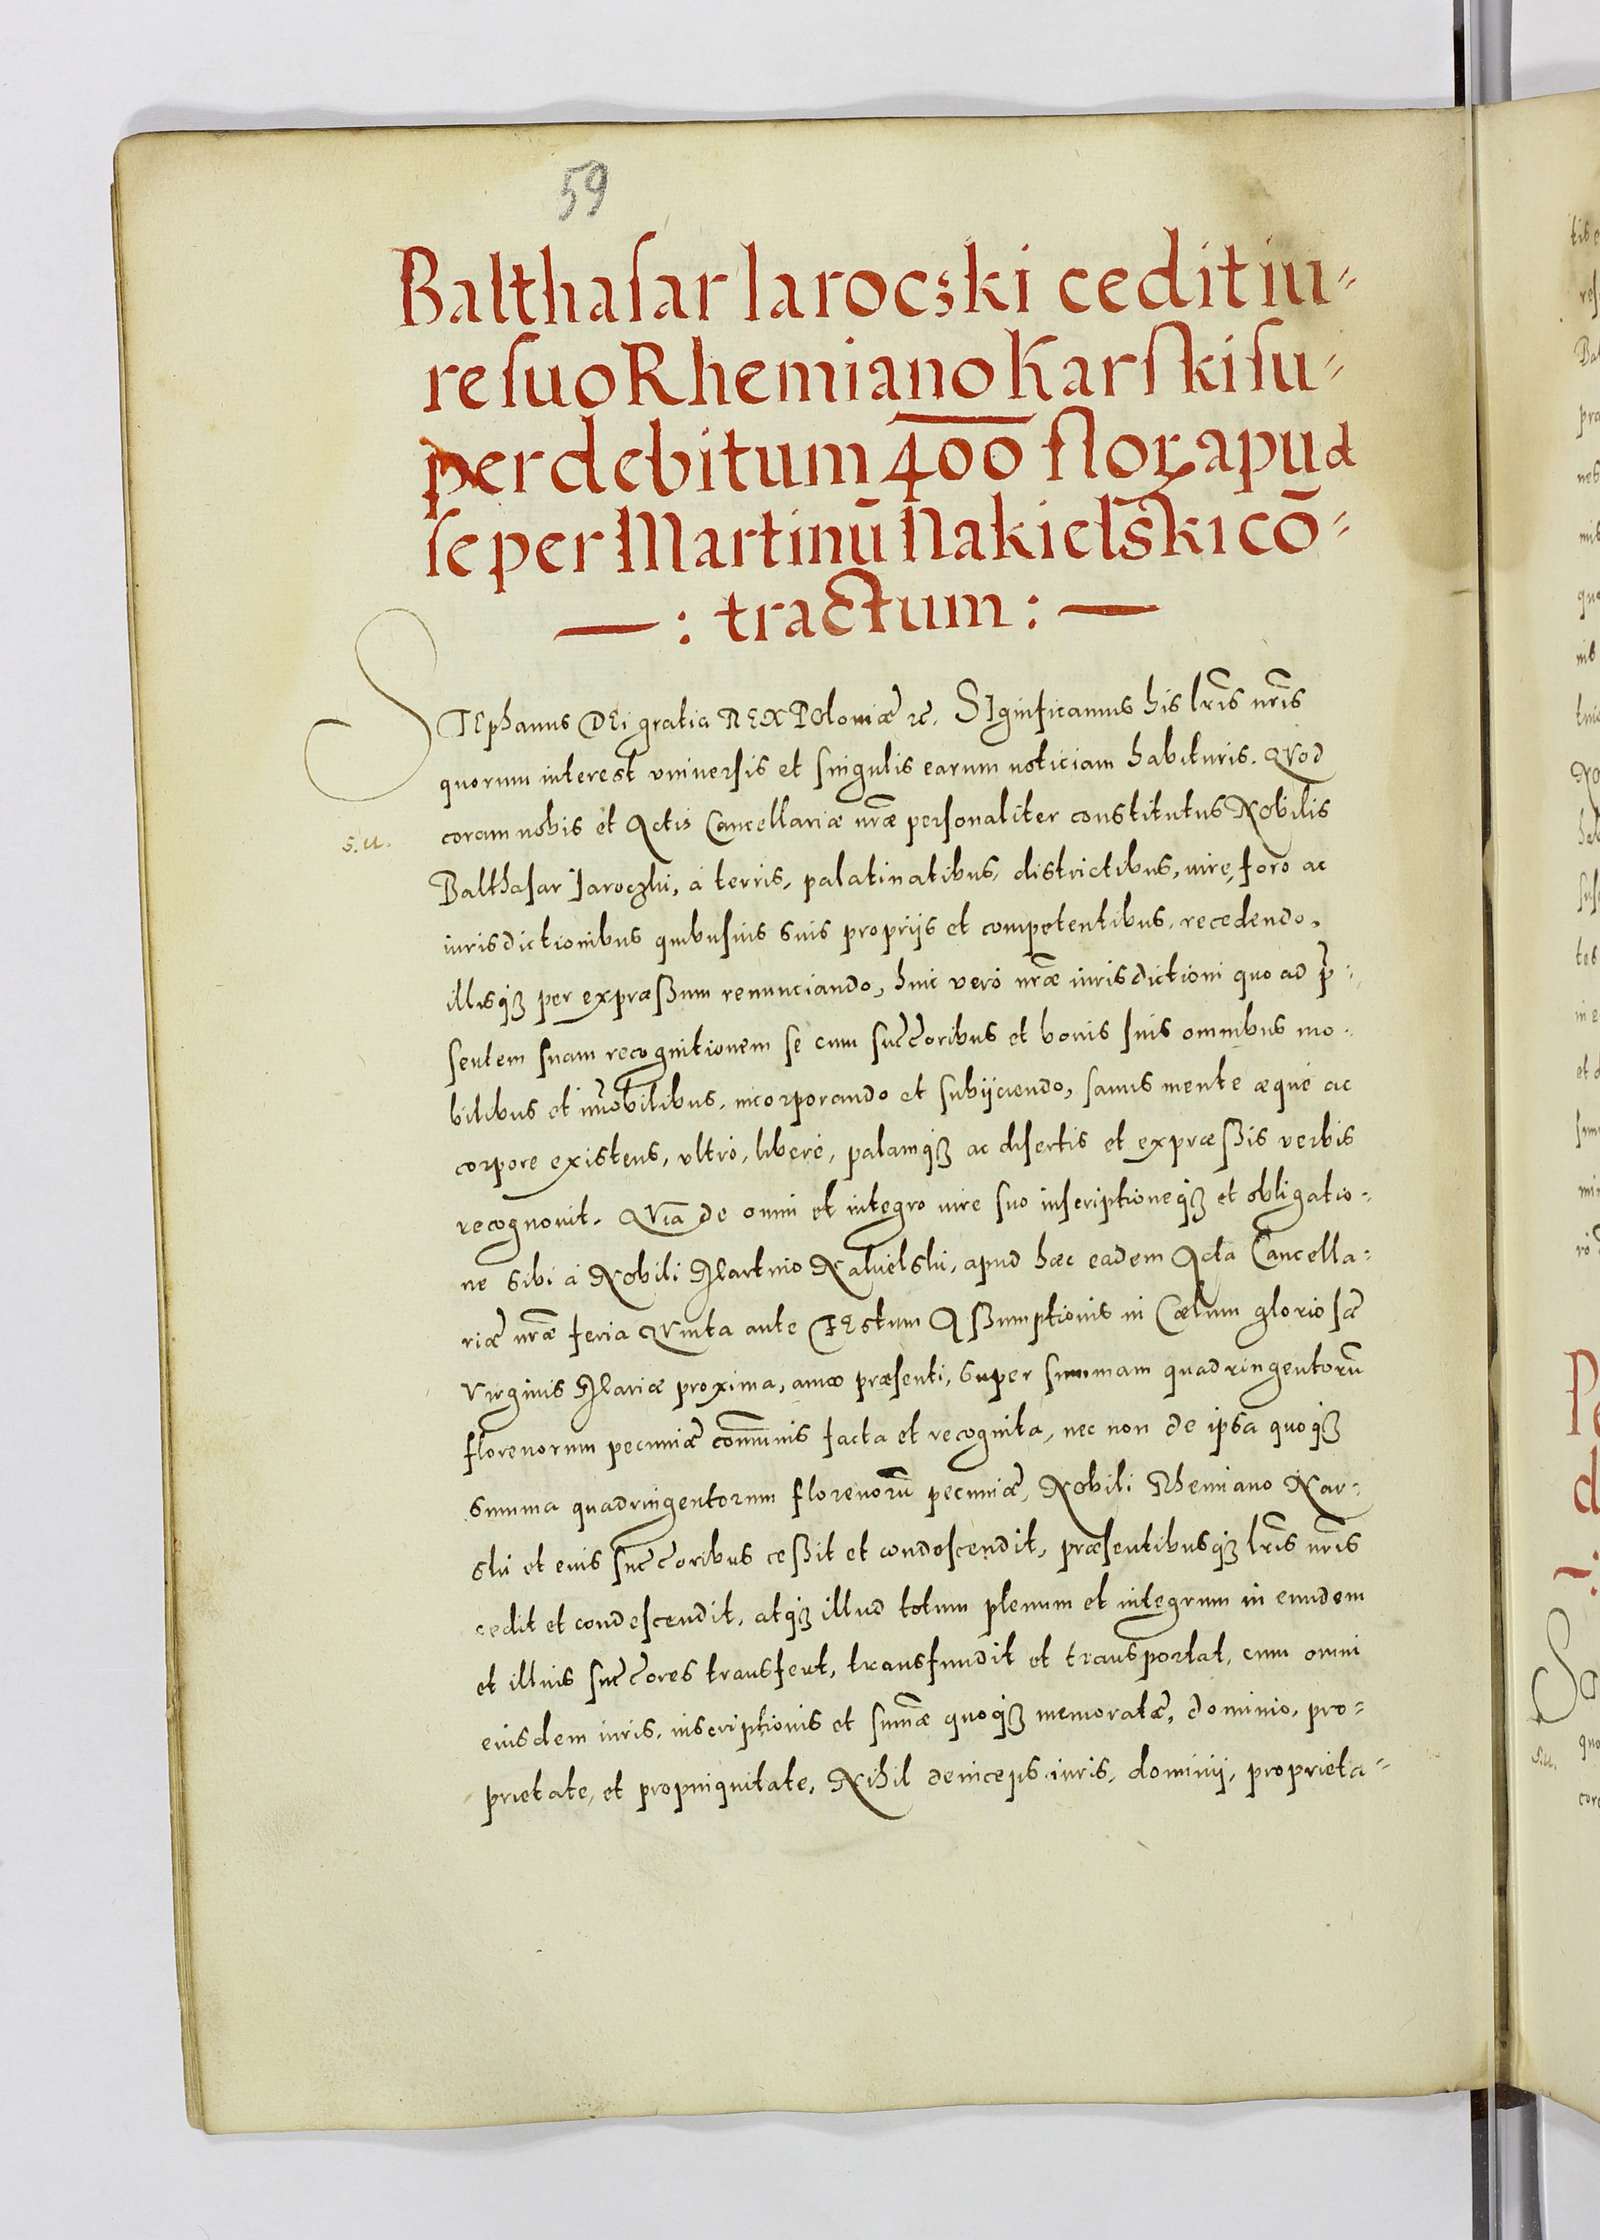 59
Balthasar Iarocski cedit iu-
re suo Rhemiano Karski su-
per debitum 400 floꝝ apud
se per Martinū Nakielski cō-
—: tractum :—
STEphanus DEi gratia REX POloniæ ꝛc. SIgnificamus his lr̃is nr̃is
quorum interest vniuersis et singulis earum noticiam habituris. QVod
s. u.
coram nobis et Actis Cancellariæ nr̃æ personaliter constitutus Nobilis
Balthasar Iaroczki, á terris, palatinatibus, districtibus, iure, foro ac
iurisdictionibus quibusuis suis proprijs et competentibus, recedendo,
illisqꝫ per expræßum renunciando, huic veró nr̃æ iurisdictioni quo ad p̃-
sentem suam recognitionem se cum succ̃oribus et bonis suis omnibus mo-
bilibus et im̃obilibus, incorporando et subijciendo, sanus mente æqué ac
corpore existens, vltró, liberé, palamqꝫ ac disertis et expræßis verbis
recognouit. QVia de omni et integro iure suo inscriptioneqꝫ et obligatio-
ne sibi á Nobili Martino Nakielski, apud hæc eadem Acta Cancella-
riæ nr̃æ feria QVinta ante FEstum Aßumptionis in Cælum gloriosæ
Virginis Mariæ proxima, anno præsenti, super summam quadringentorū
florenorum pecuniæ com̃unis facta et recognita, nec non de ipsa quoqꝫ
summa quadringentorum florenorū pecuniæ, Nobili Rhemiano Kar-
ski et eius succ̃oribus ceßit et condescendit, præsentibusqꝫ lr̃is nr̃is
cedit et condescendit, atqꝫ illud totum plenum et integrum in eundem
et illius succ̃ores transfert, transfundit et transportat, cum omni
eiusdem iuris, inscriptionis et sum̃æ quoqꝫ memoratæ, dominio, pro-
prietate, et propinquitate, Nihil deinceps iuris, dominij, proprieta-